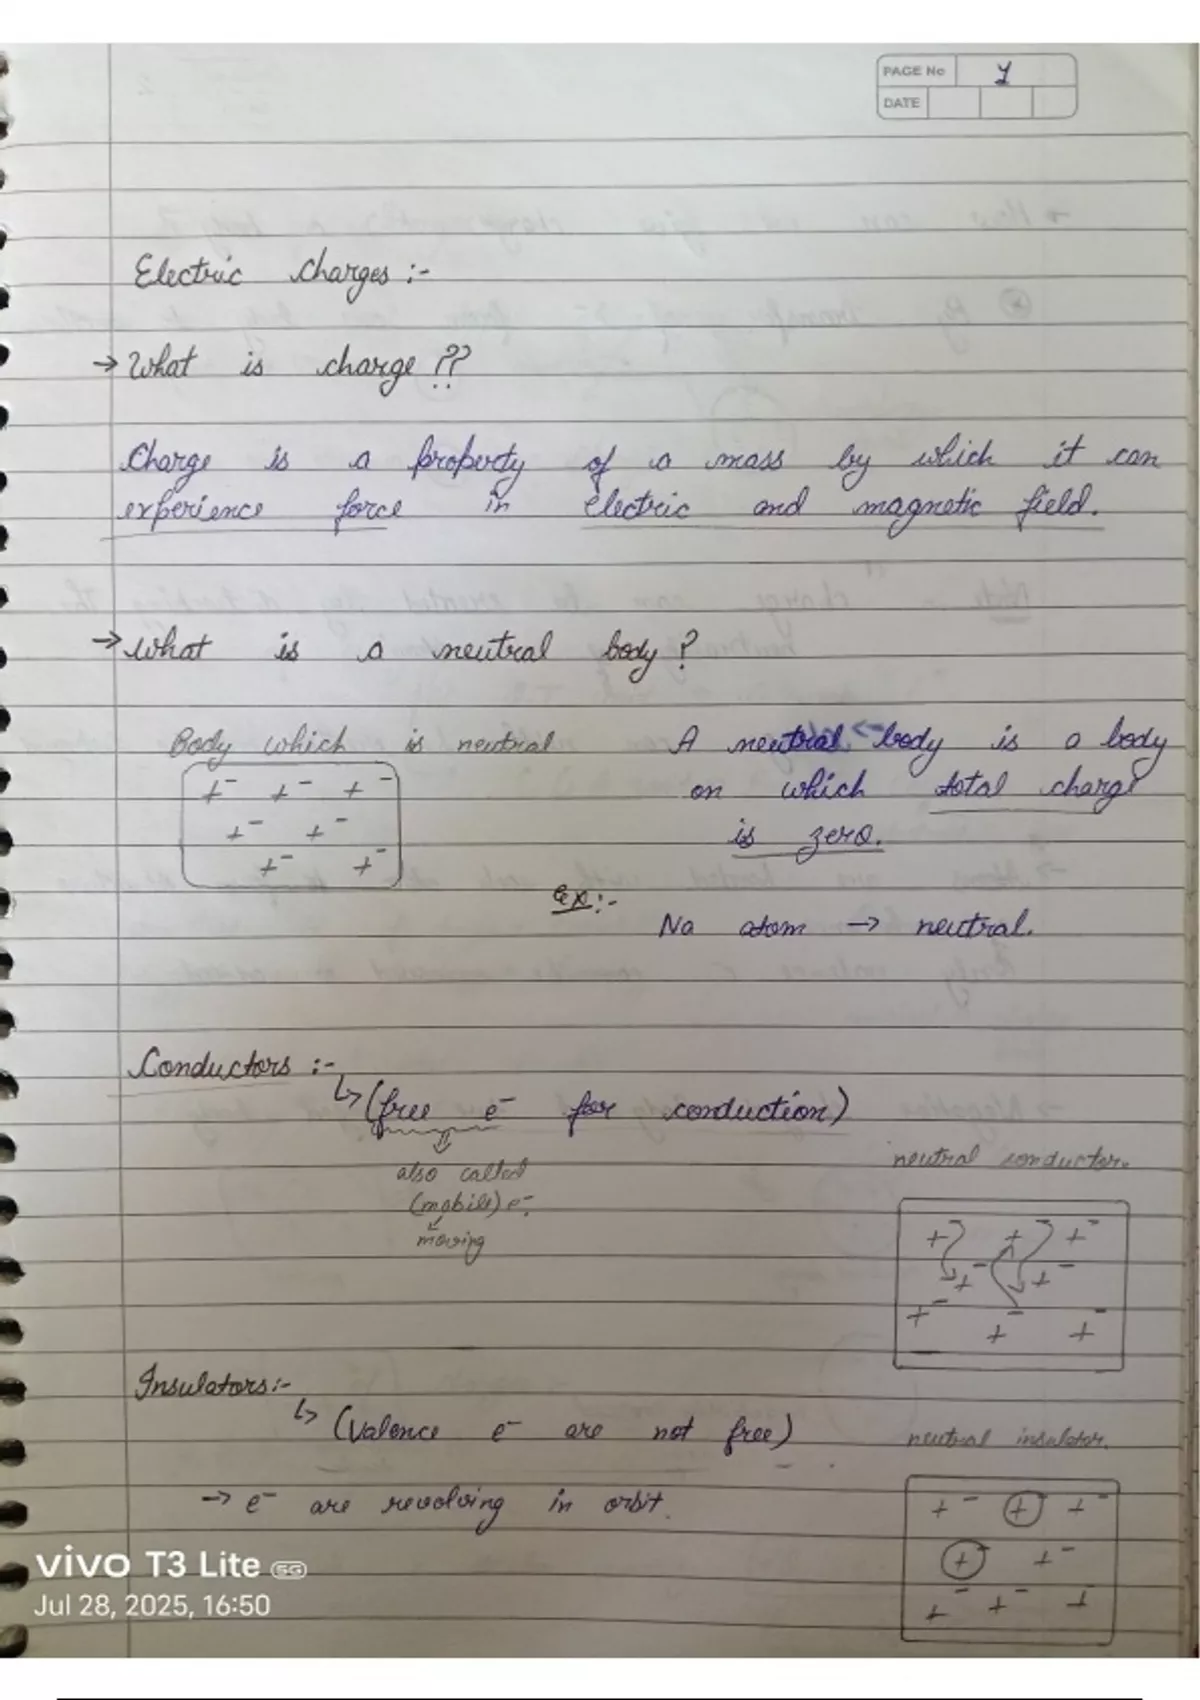 PAGE No 1
DATE
Electric charges :-
→ What is charge ??
Charge is a property of a mass by which it can
experience force in electric and magnetic field.
→ What is a neutral body ?
Body which is neutral
+- +- +-
+- +-
+- +-
A neutral body is a body
on which total charge
is zero.
ex:-
Na atom → neutral.
Conductors :-
↳ (free e- for conduction)
also called
(mobile) e-
moving
neutral conductor.
+ + +-
+- +-
+- +- +-
Insulators:-
↳ (Valence e- are not free)
→ e- are revolving in orbit.
neutral insulator.
+- +- +-
+- +-
+- +- +-
vivo T3 Lite 5G
Jul 28, 2025, 16:50